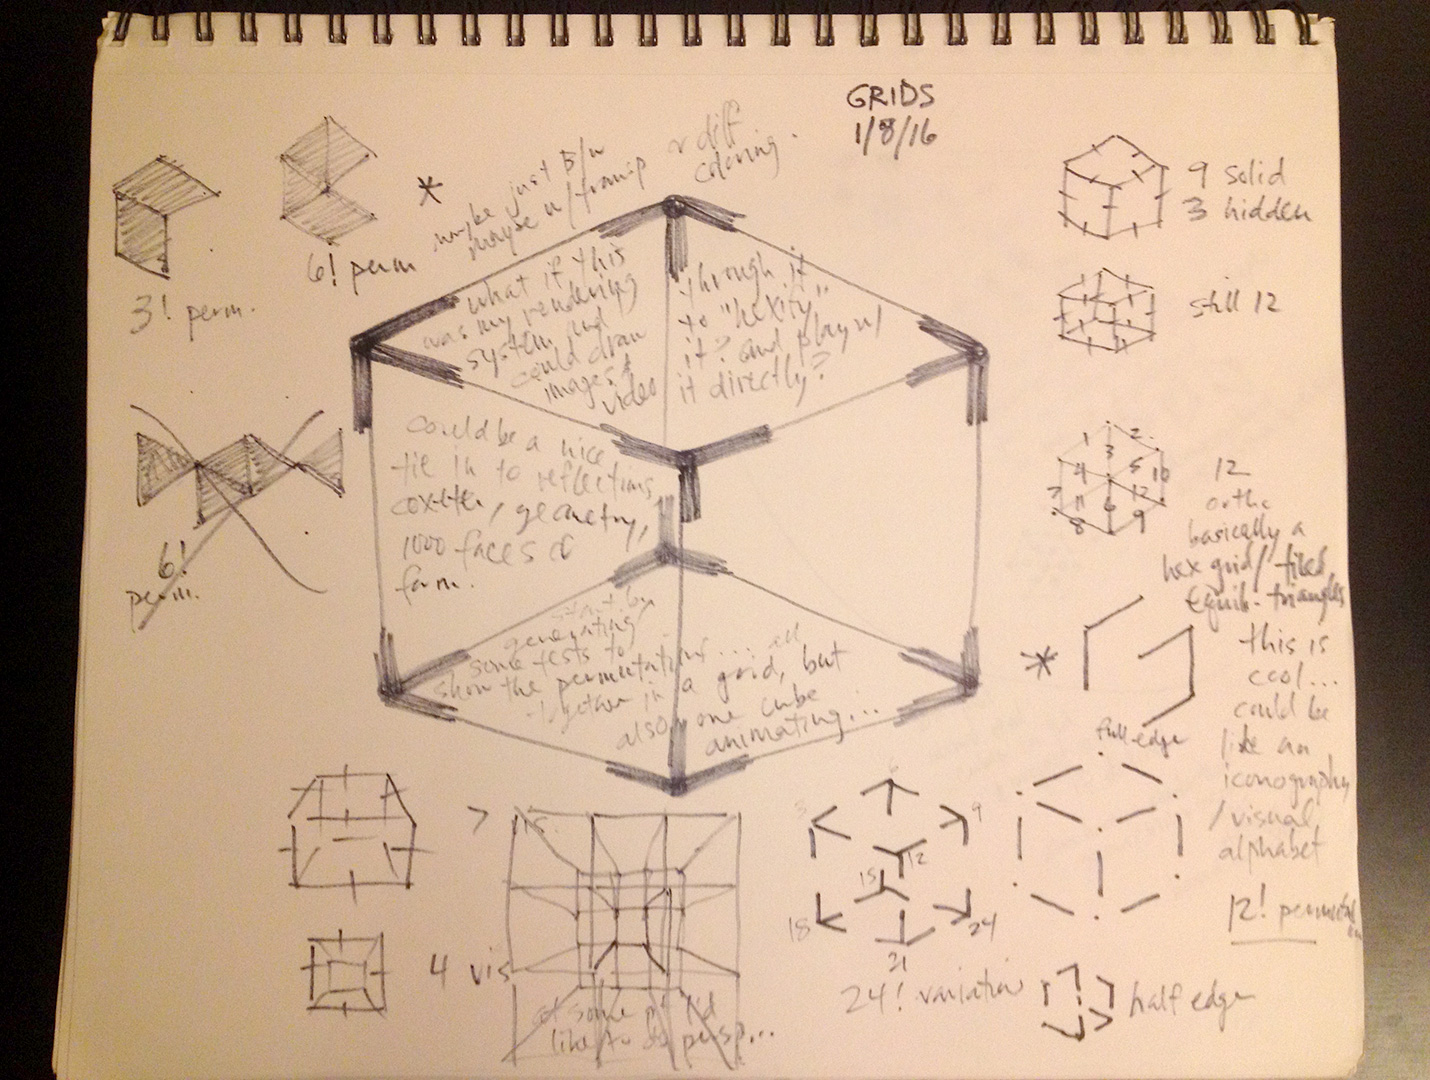 GRIDS
1/8/16
3! perm.
6! perm
*
maybe just B/w
maybe w/ transp
or diff
coloring.
what if this
was my rendering
system and
could draw
images &
video
through it
to "hexify"
it? and play w/
it directly?
could be a nice
tie in to reflections,
coxeter, geometry,
1000 faces of
form.
start by
generating
some tests to
show the permutations... all
together in a grid, but
also one cube
animating...
6!
perm.
9 solid
3 hidden
still 12
1
2
3
4
5
10
7
11
12
8
6
9
12
ortho
basically a
hex grid/ tiled
equil. triangles
*
full edge
this is
cool...
could be
like an
iconography
/visual
alphabet
12! permutation
7
vis.
4 vis
at some pt I'd
like to do persp...
3
6
9
12
15
18
21
24
24! variation
half edge